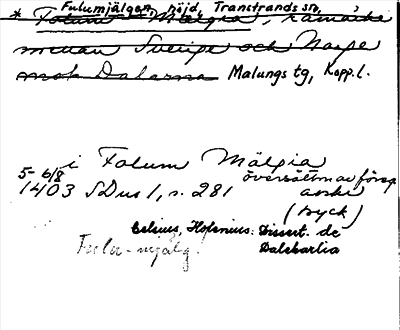 Fulumjälgen, höjd, Transtrands sn,
* Folum Mälgia, råmärke
mellan Sverige och Norge
mot Dalarna Malungs tg, Kopp.l.
i Folum Mälgia
5-6/8 översättn av försv
1403 SDns 1, s. 281 anske
(tryck)
Celsius, Hofenius: Dissert. de
Fulu-mjälg. Dalekarlia